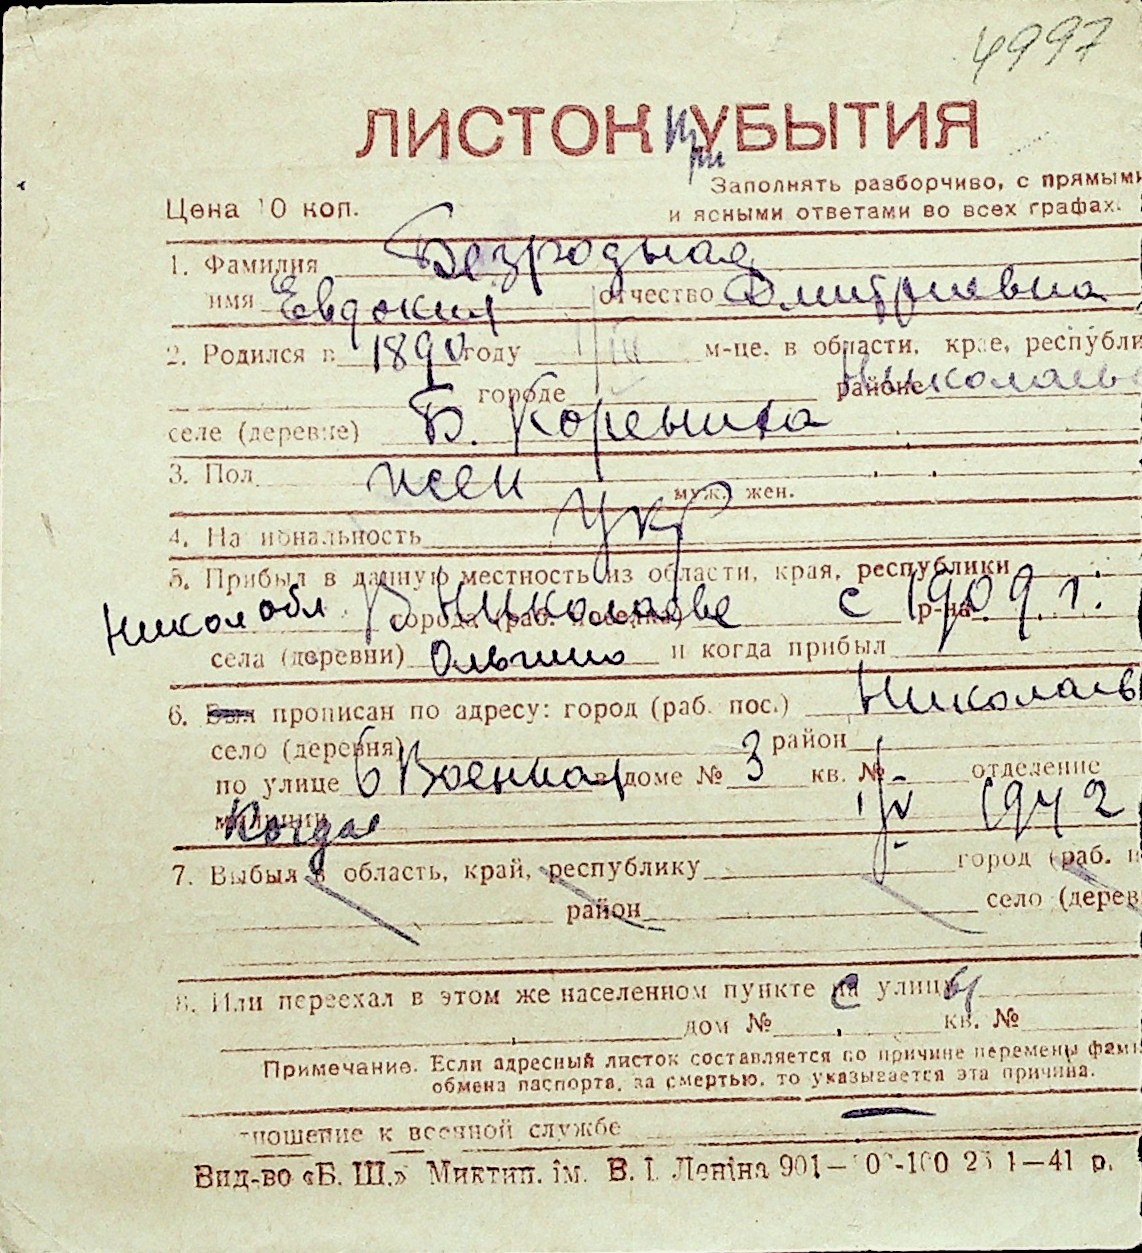 4997
ЛИСТОК при УБЫТИЯ
Цена 10 коп.
Заполнять разборчиво, с прямыми
и ясными ответами во всех графах.
1. Фамилия Безродная
имя Евдокия отчество Дмитриевна
2. Родился в 1890 году м-це, в области, крае, республи
городе районе Николаев
селе (деревне) Б. Корениха
3. Пол жен муж. жен.
4. Национальность Укр
5. Прибыл в данную местность из области, края, республики
Никол обл города (раб. поселка) В Николаеве с 1909 г. р-на
села (деревни) Ольгино и когда прибыл
6. Был прописан по адресу: город (раб. пос.) Николаев
село (деревня) район
по улице 6 Военная в доме № 3 кв. № отделение
милиции Когда 1942
7. Выбыл в область, край, республику город (раб. п
район село (дерев
8. Или переехал в этом же населенном пункте на с улицы
дом № кв. №
Примечание. Если адресный листок составляется по причине перемены фами
обмена паспорта, за смертью, то указывается эта причина.
ношение к военной службе
Вид-во «Б. Ш.» Миктип. ім. В. І. Леніна 901— 1—41 р.